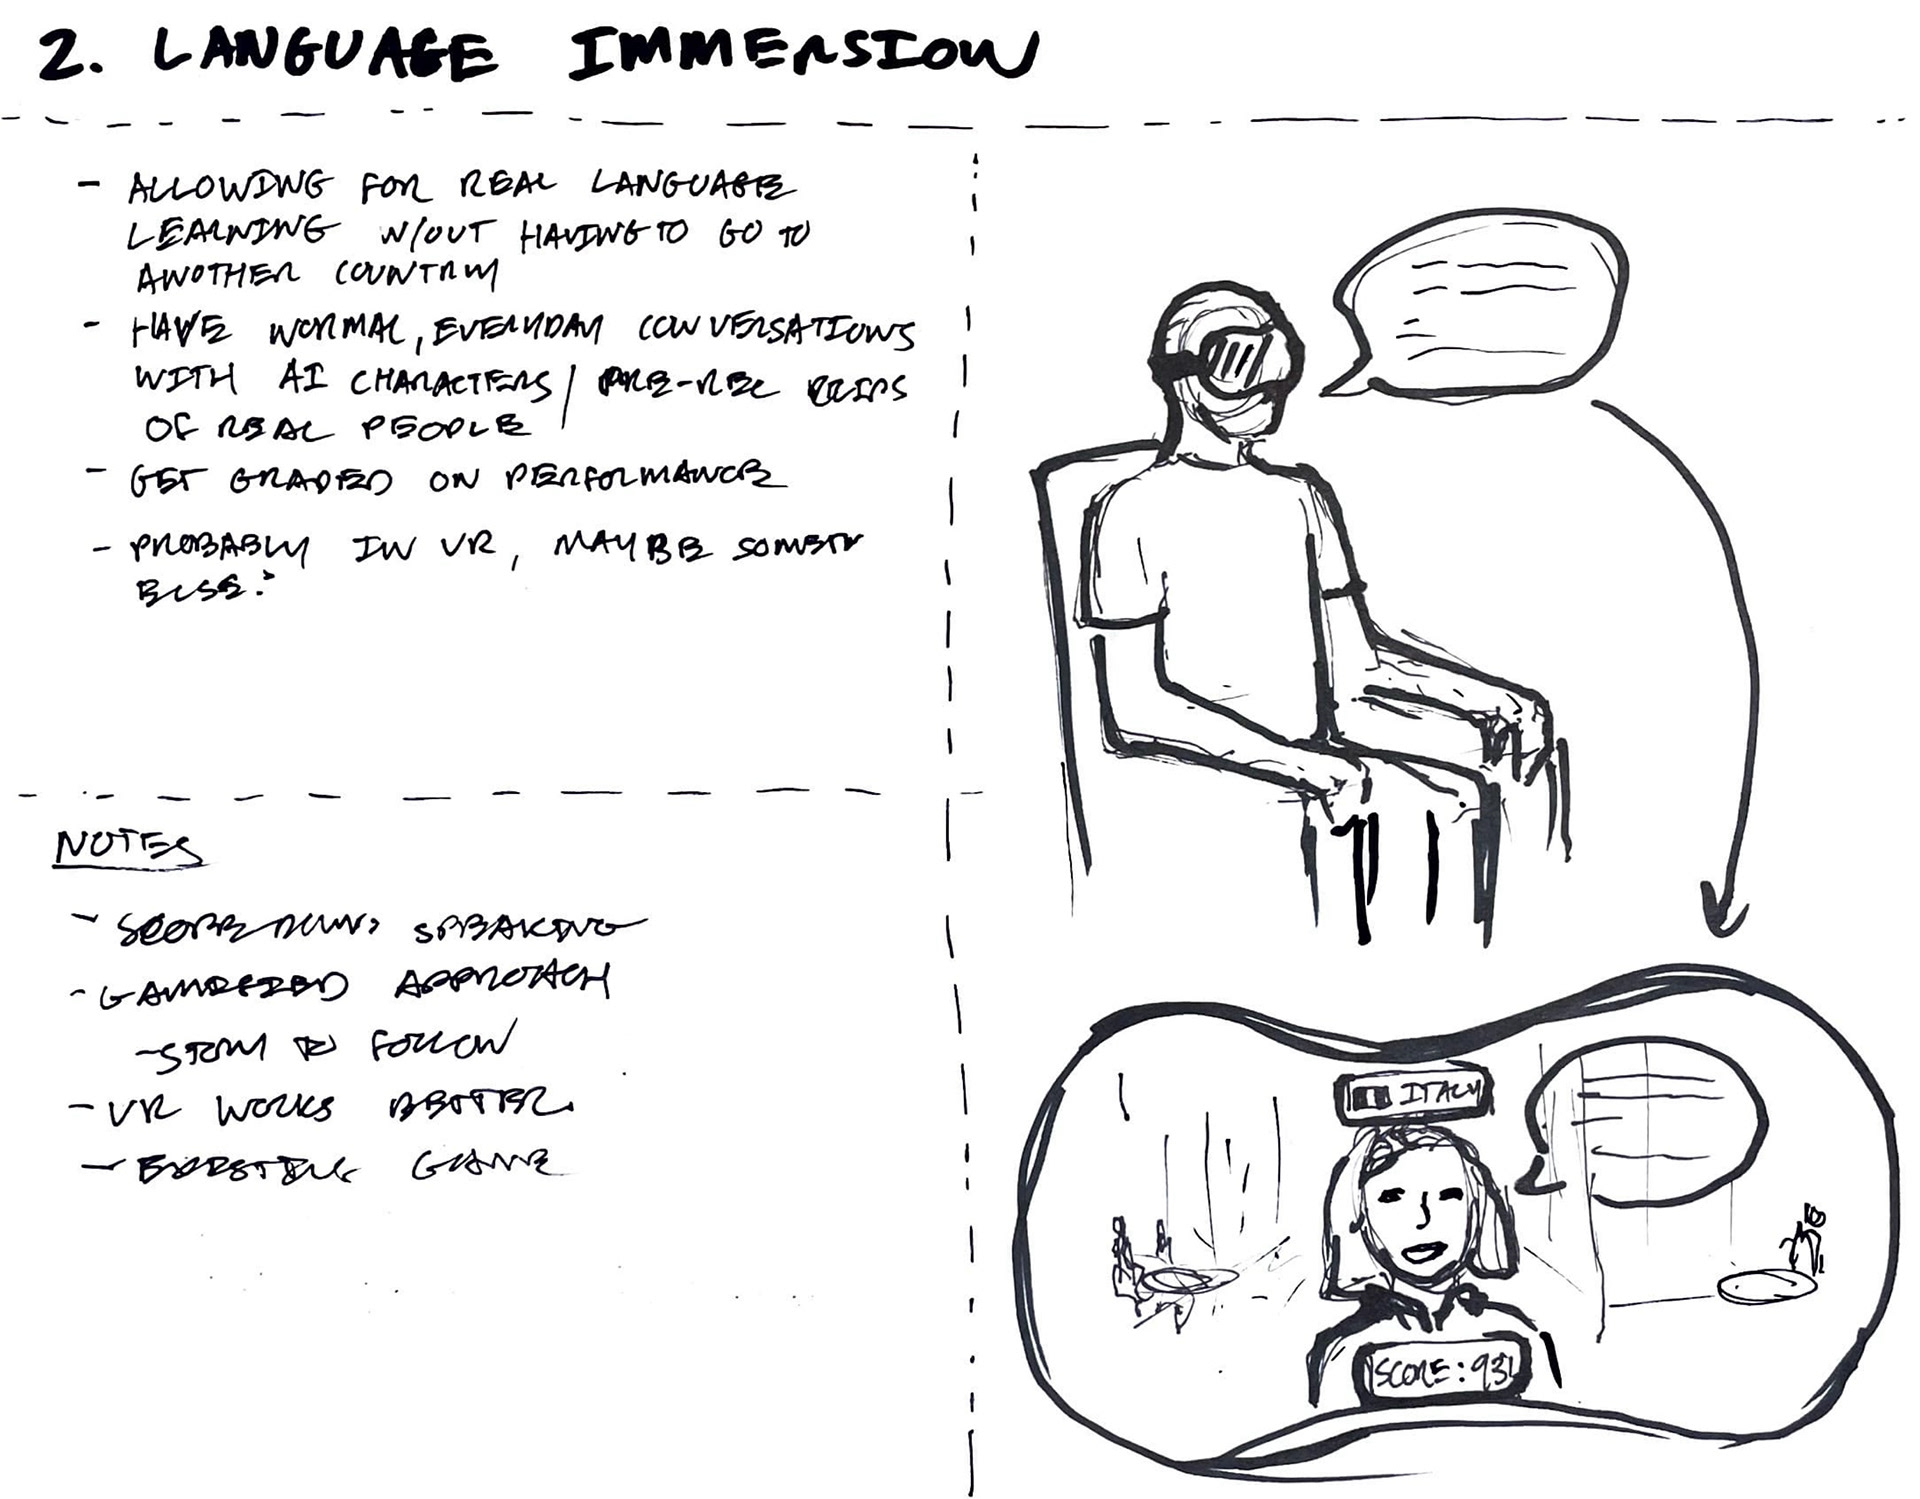 2. LANGUAGE IMMERSION
- ALLOWING FOR REAL LANGUAGE
LEARNING W/OUT HAVING TO GO TO
ANOTHER COUNTRY
- HAVE NORMAL, EVERYDAY CONVERSATIONS
WITH AI CHARACTERS / PRE-REC CLIPS
OF REAL PEOPLE
- GET GRADED ON PERFORMANCE
- PROBABLY IN VR, MAYBE
ELSE?
NOTES
- SPEAKING
- GAMIFIED APPROACH
- STORY TO FOLLOW
- VR WORKS BETTER
- EXISTING GAME
ITALY
SCORE: 93